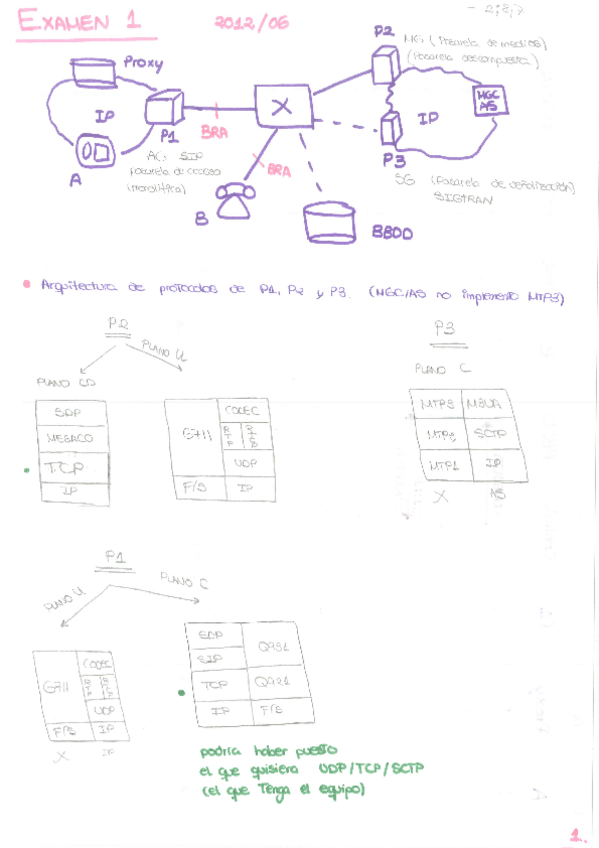 EXAMEN 1
2012/06
- 2,8,7
P2
MG (Pasarela de medios)
(Pasarela descompuesta)
Proxy
IP
P1
BRA
X
IP
MGC
AS
A
AG SIP
pasarela de acceso
(monolítica)
B
BRA
P3
SG (Pasarela de señalización)
SIGTRAN
BBDD
• Arquitectura de protocolos de P1, P2 y P3. (MGC/AS no implementa MTP3)
P2
PLANO U
PLANO CD
SDP
MEGACO
TCP
IP
G711
CODEC
RTP
UDP
F/S
IP
P3
PLANO C
MTP3
M3UA
MTP2
SCTP
MTP1
IP
X
AS
P1
PLANO U
PLANO C
G711
CODEC
UDP
F/S
IP
X
IP
SDP
SIP
Q931
TCP
Q921
IP
F/S
podría haber puesto
el que quisiera UDP/TCP/SCTP
(el que Tenga el equipo)
1.